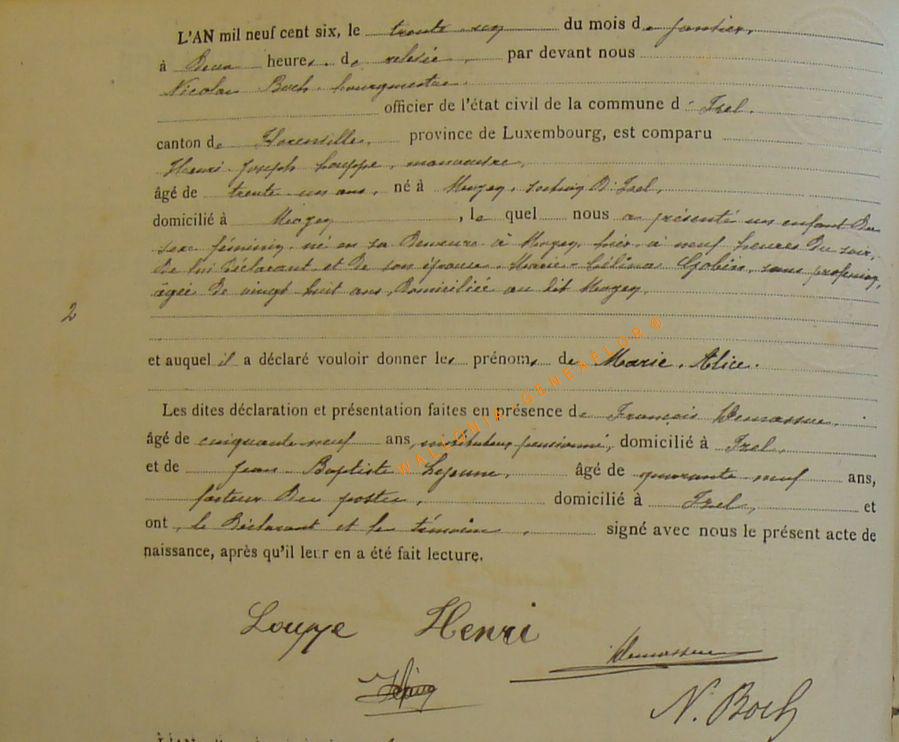 L'AN mil neuf cent six, le trente un du mois de janvier,
à Deux heures de relevée, par devant nous
Nicolas Boch, bourgmestre
officier de l'état civil de la commune d'Izel,
canton de Florenville, province de Luxembourg, est comparu
Henri Joseph Louppe, manœuvre,
âgé de trente un ans, né à Moyen, section D'Izel,
domicilié à Moyen, lequel nous a présenté un enfant du
sexe féminin, né en sa demeure à Moyen, hier, à neuf heures du soir,
de lui Déclarant et de son épouse, Marie Gobin, sans profession,
âgée de vingt huit ans, Domiciliée au dit Moyen.
2
et auquel il a déclaré vouloir donner les prénoms de Marie, Alice.
Les dites déclaration et présentation faites en présence de François
âgé de cinquante neuf ans, instituteur pensionné, domicilié à Izel,
et de Jean Baptiste Lejeune, âgé de quarante neuf ans,
facteur des postes, domicilié à Izel, et
ont, le Déclarant et les témoins, signé avec nous le présent acte de
naissance, après qu'il leur en a été fait lecture.
Louppe Henri
N. Boch
WALLONIA-GENEAFLOR®